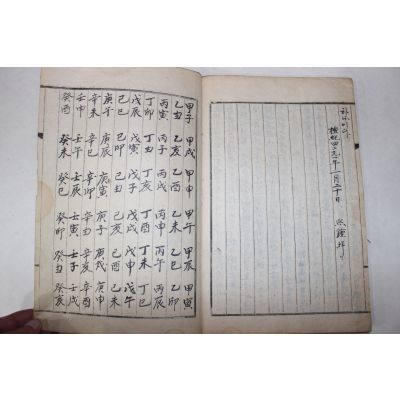 檀紀四 年一月二十日
甲子 甲戌 甲申 甲午 甲辰 甲寅
乙丑 乙亥 乙酉 乙未 乙巳 乙卯
丙寅 丙子 丙戌 丙申 丙午 丙辰
丁卯 丁丑 丁亥 丁酉 丁未 丁巳
戊辰 戊寅 戊子 戊戌 戊申 戊午
己巳 己卯 己丑 己亥 己酉 己未
庚午 庚辰 庚寅 庚子 庚戌 庚申
辛未 辛巳 辛卯 辛丑 辛亥 辛酉
壬申 壬午 壬辰 壬寅 壬子 壬戌
癸酉 癸未 癸巳 癸卯 癸丑 癸亥